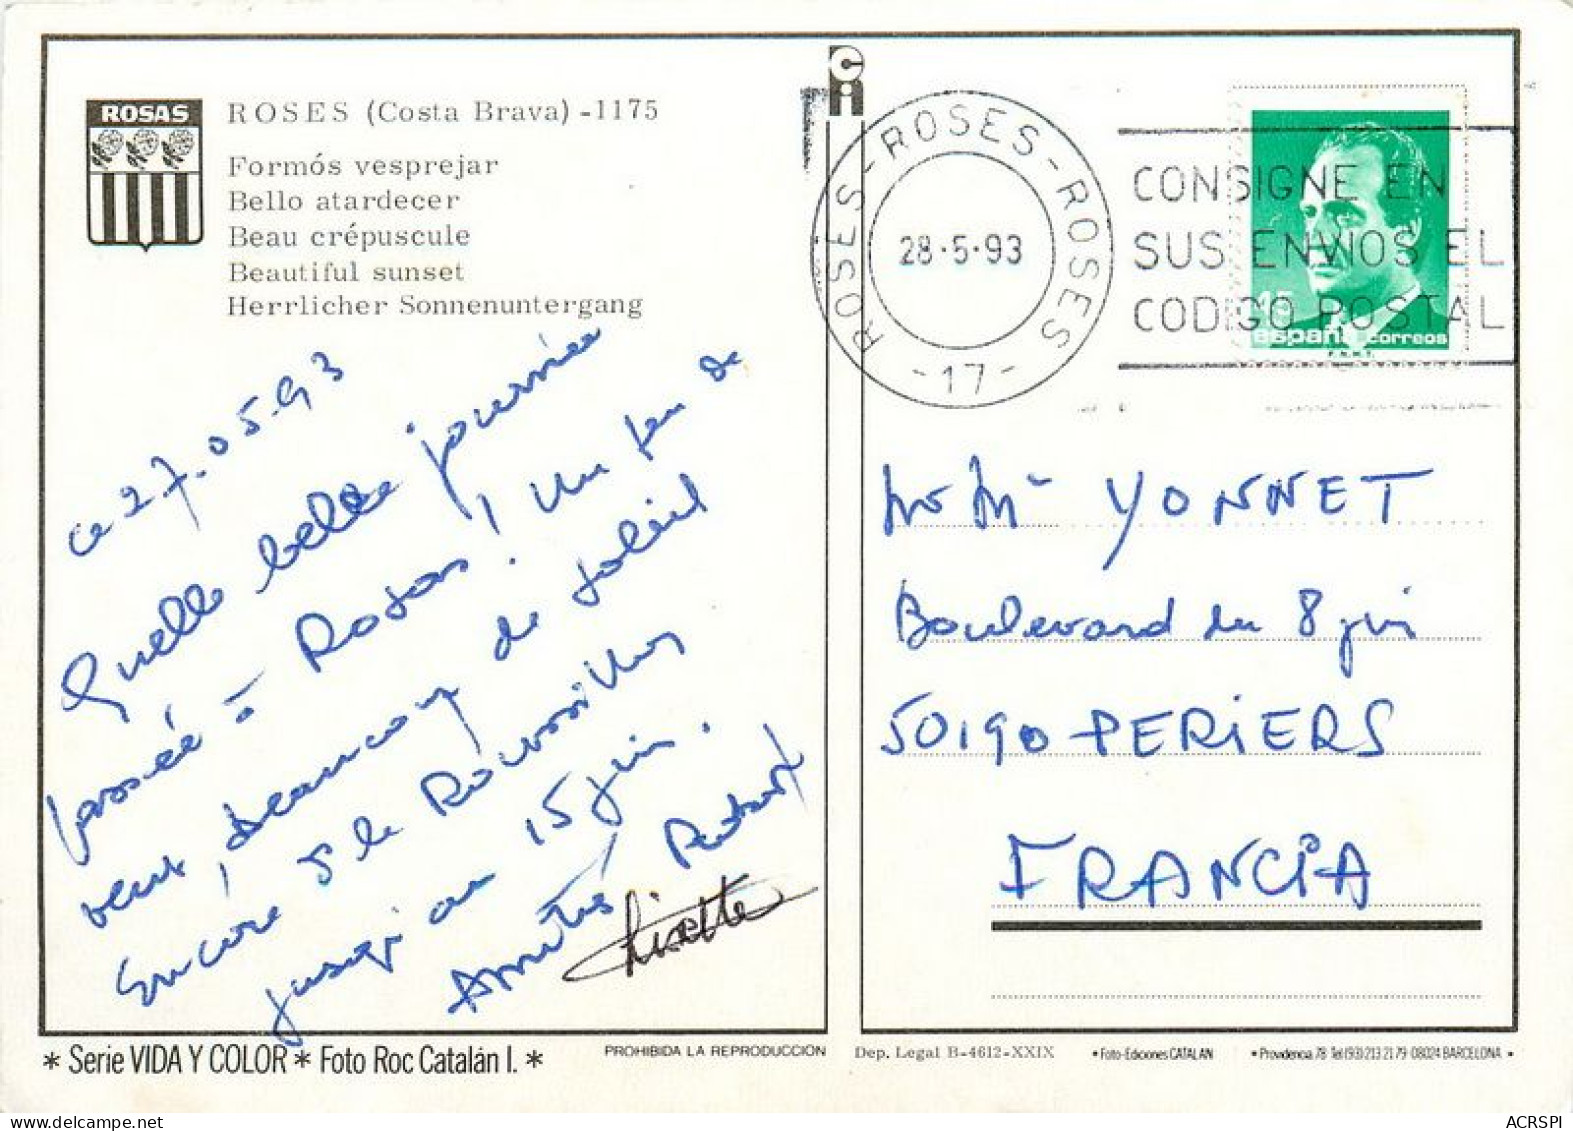 ROSAS
ROSES (Costa Brava) -1175
Formós vesprejar
Bello atardecer
Beau crépuscule
Beautiful sunset
Herrlicher Sonnenuntergang
ce 27.05.93
Quelle belle journée
passée à Rosas ! Un peu de
vent, beaucoup de soleil
Encore 5 le Roussillon
jusqu'au 15 juin.
Amitiés Robert
Lisette
* Serie VIDA Y COLOR * Foto Roc Catalán I. *
PROHIBIDA LA REPRODUCCION
ROSES - ROSES - ROSES - ROSES
28·5·93
- 17 -
CONSIGNE EN
SUS ENVIOS EL
CODIGO POSTAL
45
españa correos
F.N.M.T.
Mr Me YONNET
Boulevard du 8 juin
50190 PERIERS
FRANCIA
Dep. Legal B-4612-XXIX
• Foto-Ediciones CATALAN
• Providencia, 78 Tel (93) 213 21 79 08024 BARCELONA •
ACRSPI